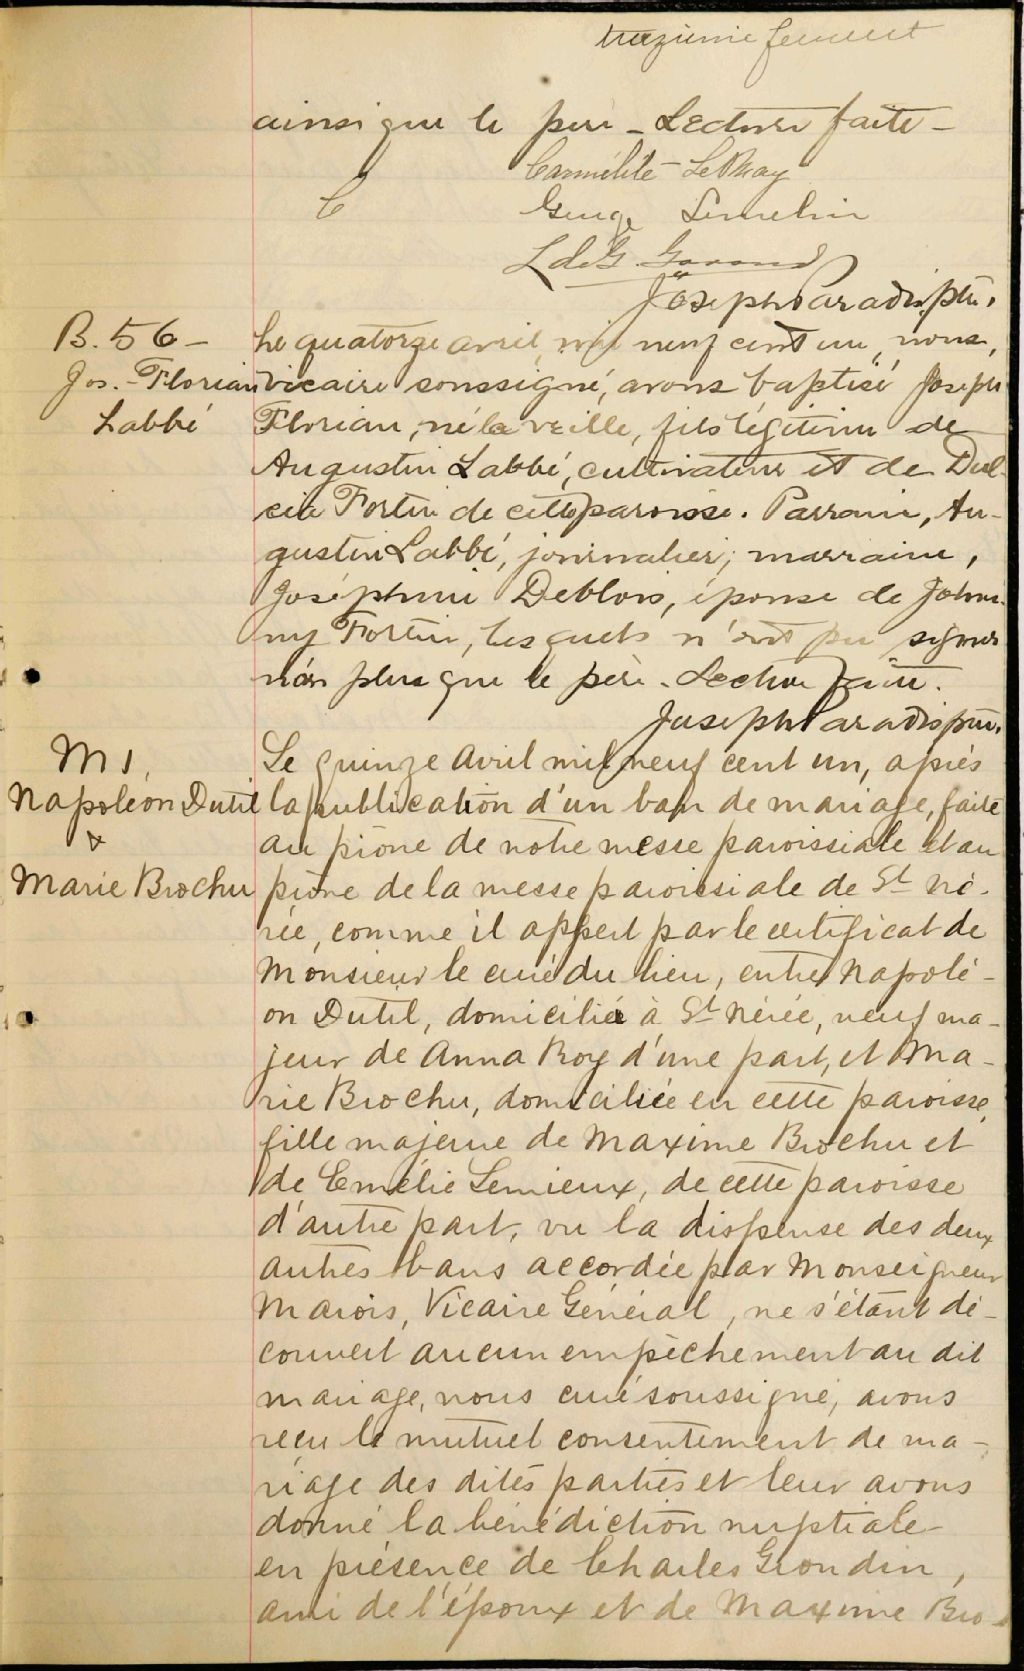 treizième feuillet
ainsi que le père - Lecture faite -
Carmélite LeMay
C
George Lemelin
L de G Garond
Joseph Paradis, ptre.
B. 56 -
Jos. - Florian
Labbé
Le quatorze avril, mil neuf cent un, nous,
vicaire soussigné, avons baptisé Joseph
Florian, né la veille, fils légitime de
Augustin Labbé, cultivateur et de Dul-
cia Fortin de cette paroisse. Parrain, Au-
gustin Labbé, journalier; marraine,
Joséphine Deblois, épouse de John-
ny Fortin, lesquels n'ont pu signer
non plus que le père. Lecture faite.
Joseph Paradis ptre.
M 1,
Napoléon Dutil
&
Marie Brochu
Le quinze Avril mil neuf cent un, après
la publication d'un ban de mariage, faite
au prône de notre messe paroissiale et au
prône de la messe paroissiale de St Né-
rée, comme il appert par le certificat de
Monsieur le curé du lieu, entre Napolé-
on Dutil, domicilié à St Nérée, veuf ma-
jeur de Anna Roy d'une part, et Ma-
rie Brochu, domiciliée en cette paroisse,
fille majeure de Maxime Brochu et
de Emélie Lemieux, de cette paroisse
d'autre part, vu la dispense des deux
autres bans accordée par Monseigneur
Marois, Vicaire Général, ne s'étant dé-
couvert aucun empêchement au dit
mariage, nous curé soussigné, avons
reçu le mutuel consentement de ma-
riage des dites parties et leur avons
donné la bénédiction nuptiale
en présence de Charles Grondin,
ami de l'époux et de Maxime Bro-